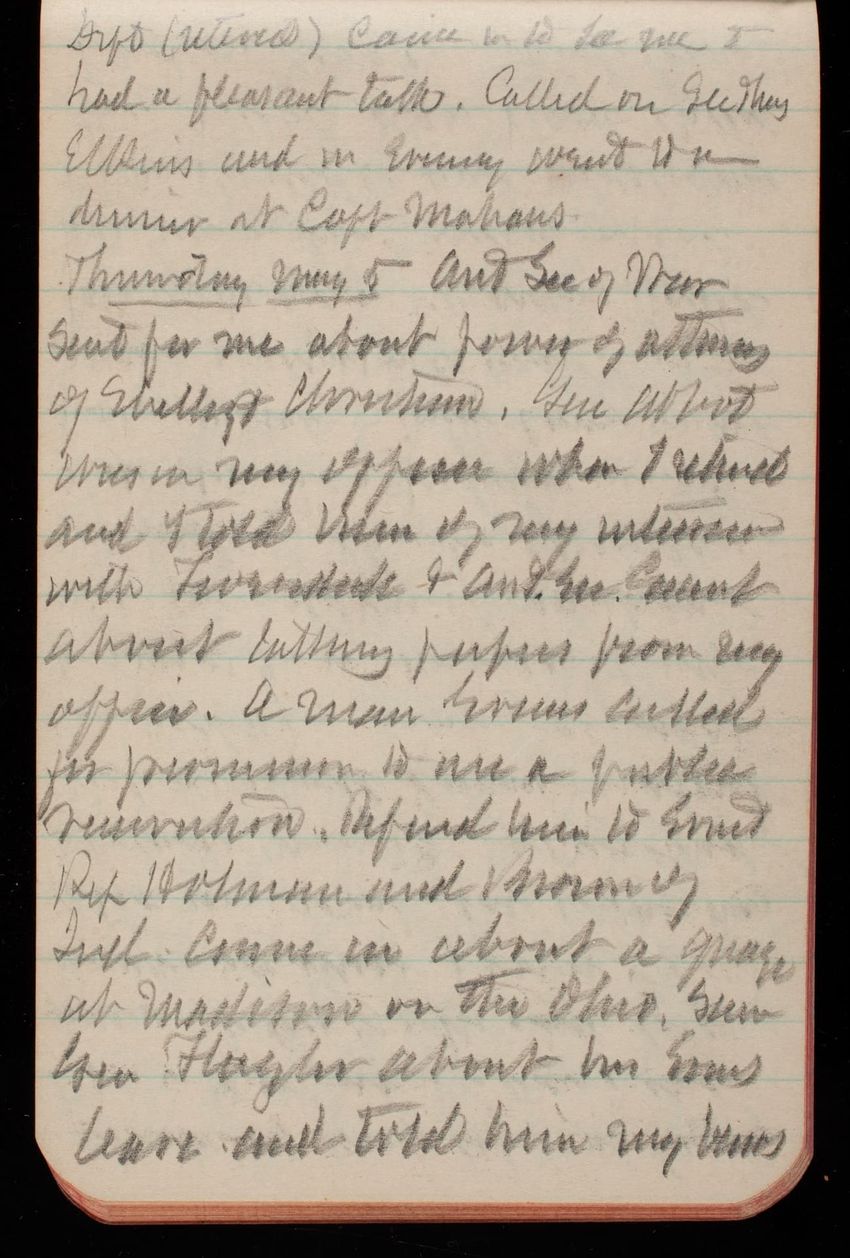 Dept (retired) Came in to see me &
had a pleasant talk. Called on Sec'y
Elkins and in Evening went to a
dinner at Capt Mahans
Thursday May 5 Asst Sec of War
sent for me about power of attorney
of Christian. Gen Abbot
was in my office when I returned
and I told him of my interview
with & Asst. Sec. Grant
about letting papers from my
office. A man Evans called
for permission to use a public
reservation. Referred him to Ernst
Rep Holman and Brown of
Ind. Came in about a gauge
at Madison on the Ohio. Saw
Geo Flagler about his Evans
leave and told him my views